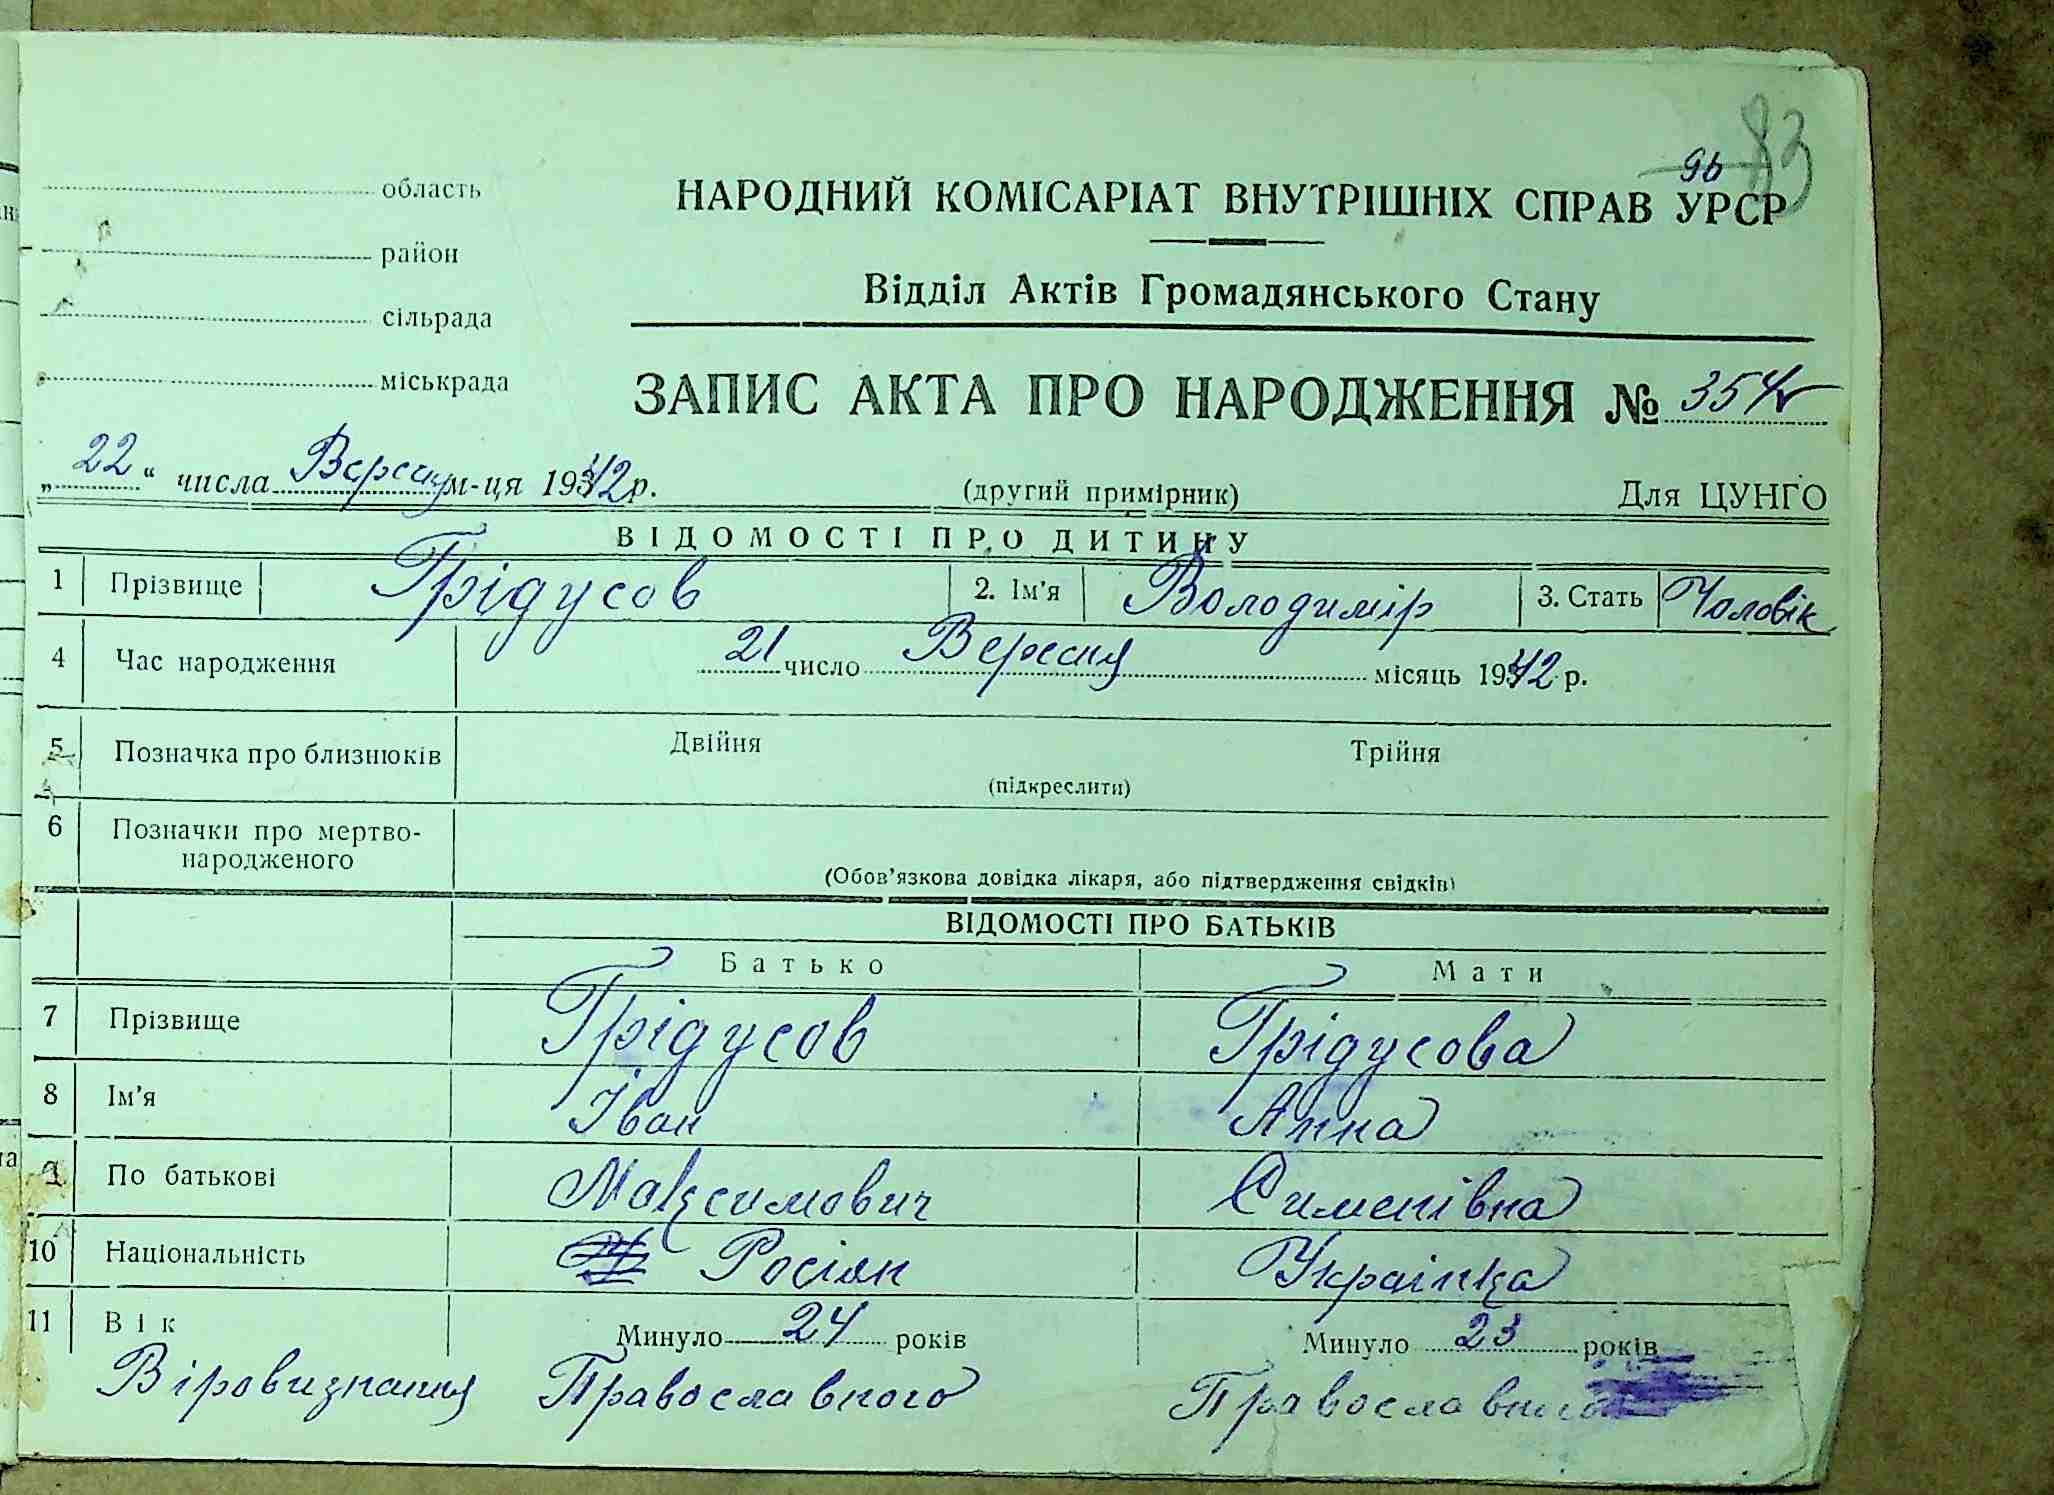 83
96
область
район
сільрада
міськрада
НАРОДНИЙ КОМІСАРІАТ ВНУТРІШНІХ СПРАВ УРСР
Відділ Актів Громадянського Стану
ЗАПИС АКТА ПРО НАРОДЖЕННЯ № 354
„22" числа Вересня м-ця 1942 р. (другий примірник) Для ЦУНГО
ВІДОМОСТІ ПРО ДИТИНУ
1 Прізвище Грідусов 2. Ім'я Володимір 3. Стать Чоловік
4 Час народження 21 число Вересня місяць 1942 р.
5 Позначка про близнюків Двійня Трійня
(підкреслити)
6 Позначки про мертво-
народженого
(Обов'язкова довідка лікаря, або підтвердження свідків)
ВІДОМОСТІ ПРО БАТЬКІВ
Батько Мати
7 Прізвище Грідусов Грідусова
8 Ім'я Іван Анна
9 По батькові Максимович Сименівна
10 Національність Росіян Українка
11 Вік Минуло 24 років Минуло 23 років
Віровизнання Православного Православного